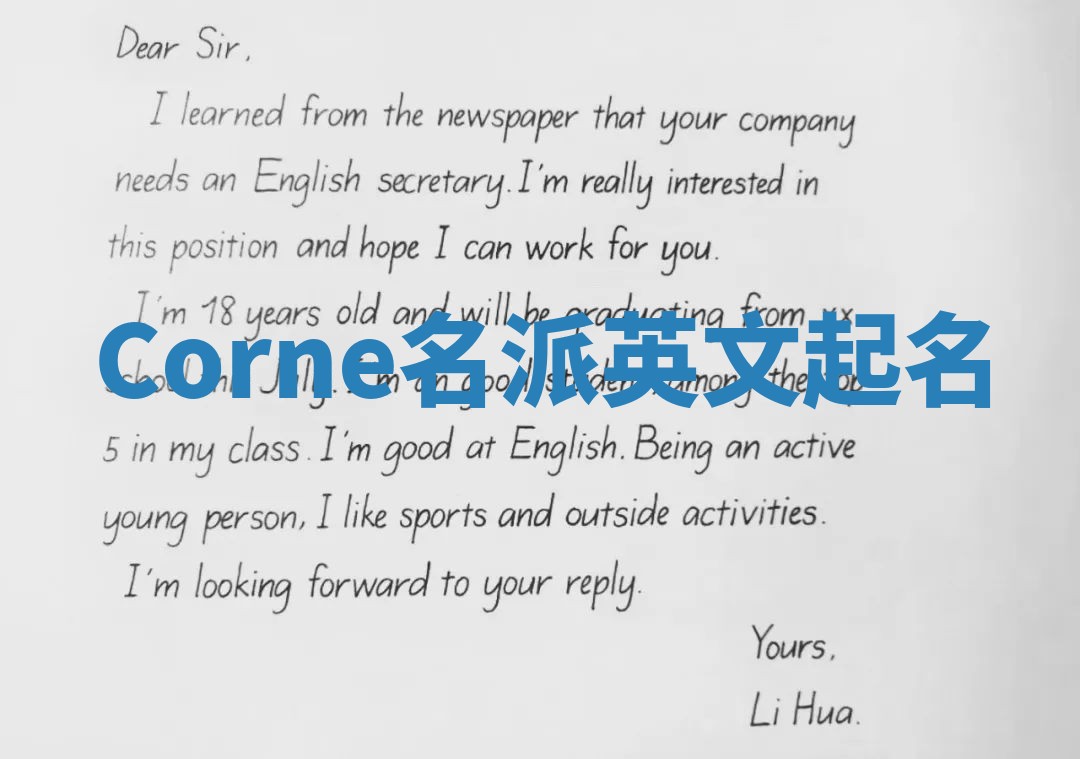 Dear Sir,
I learned from the newspaper that your company
needs an English secretary. I'm really interested in
this position and hope I can work for you.
I'm 18 years old and will be graduating from xx
Corne名派英文起名
school July. I'm good student among the top
5 in my class. I'm good at English. Being an active
young person, I like sports and outside activities.
I'm looking forward to your reply.
Yours,
Li Hua.